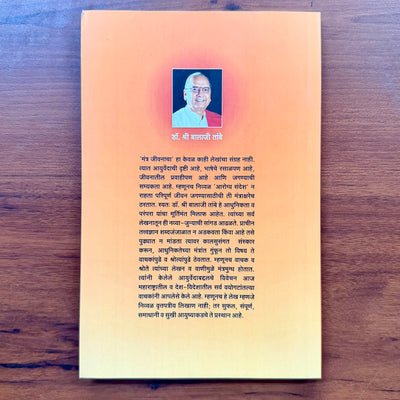 डॉ. श्री बालाजी तांबे
'मंत्र जीवनाचा' हा केवळ काही लेखांचा संग्रह नाही.
त्यात आयुर्वेदाची दृष्टी आहे, भाषेचे रसाळपण आहे,
जीवनातील प्रवाहीपण आहे आणि जगण्याची
सम्यकता आहे. म्हणूनच निव्वळ 'आरोग्य संदेश' न
राहता परिपूर्ण जीवन जगण्यासाठीची ती मंत्राक्षरेच
ठरतात. स्वतः डॉ. श्री बालाजी तांबे हे आधुनिकता व
परंपरा यांचा मूर्तिमंत मिलाफ आहेत. त्यांच्या सर्व
लेखनातूनही नव्या-जुन्याची सांगड आढळते. प्राचीन
तत्त्वज्ञान शब्दजंजाळात न अडकवता किंवा आहे तसे
पुढ्यात न मांडता त्यावर कालसुसंगत संस्कार
करून, आधुनिकतेच्या मंत्रांत गुंफून तो विषय ते
वाचकांपुढे व श्रोत्यांपुढे ठेवतात. म्हणूनच वाचक व
श्रोते त्यांच्या लेखन व वाणीमुळे मंत्रमुग्ध होतात.
त्यांनी केलेले आयुर्वेदाबद्दलचे विवेचन आज
महाराष्ट्रातील व देश-विदेशातील सर्व वयोगटांतल्या
वाचकांनी आपलेसे केले आहे. म्हणूनच हे लेख म्हणजे
निव्वळ वृत्तपत्रीय लिखाण नाही; तर सुफल, संपूर्ण,
समाधानी व सुखी आयुष्याकडचे ते प्रस्थान आहे.